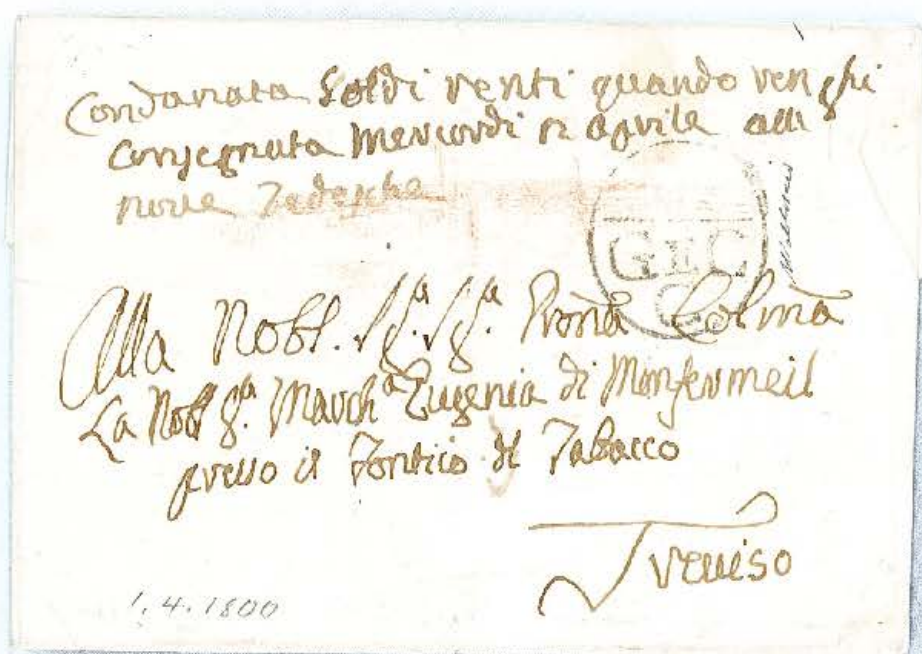 Condanata Soldi venti quando venghi
Consegnata Mercordi n aprile alli
nove Tedesche
GEC
C
Alla Nobl. Sg.ª Sg.ª Pronã Colmã
La Nobl Sg.ª March.ª Eugenia di Monfermeil
presso il Fontico di Tabacco
Treviso
1.4.1800